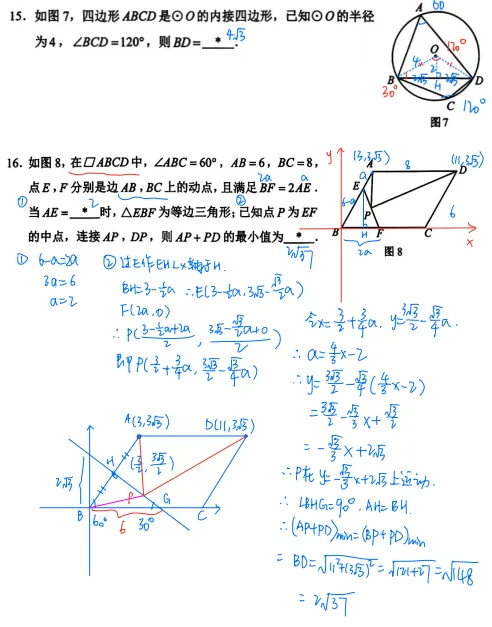 15. 如图7，四边形ABCD是⊙O的内接四边形，已知⊙O的半径
为4，∠BCD=120°，则BD= * .
4√3
A 60
O 120°
4 2
B 2√3 H 2√3 D
30°
C 120°
图7
16. 如图8，在▱ABCD中，∠ABC=60°，AB=6，BC=8，
点E，F分别是边AB，BC上的动点，且满足BF=2AE.
2a a
① 2 ②
当AE= * 时，△EBF为等边三角形；已知点P为EF
的中点，连接AP，DP，则AP+PD的最小值为 * .
2√37
y (3,3√3) (11,3√3)
A 8 D
a
E
6-a
P 6
B H F C x
2a
图8
① 6-a=2a
3a=6
a=2
② 过E作EH⊥x轴于H.
BH=3-½a ∴E(3-½a, 3√3-√3/2a)
F(2a,0)
∴P((3-½a+2a)/2, (3√3-√3/2a+0)/2)
即P(3/2+3/4a, 3√3/2-√3/4a)
令x=3/2+3/4a, y=3√3/2-√3/4a.
∴a=4/3x-2
∴y=3√3/2-√3/4(4/3x-2)
=3√3/2-√3/3x+√3/2
=-√3/3x+2√3
∴P在y=-√3/3x+2√3上运动.
∴∠BHG=90°, AH=BH.
∴(AP+PD)min=(BP+PD)min
=BD=√(11²+(3√3)²)=√(121+27)=√148
=2√37
A(3,3√3) D(11,3√3)
H (3/2, 3√3/2)
2√3
P G
B 60° 6 30° C